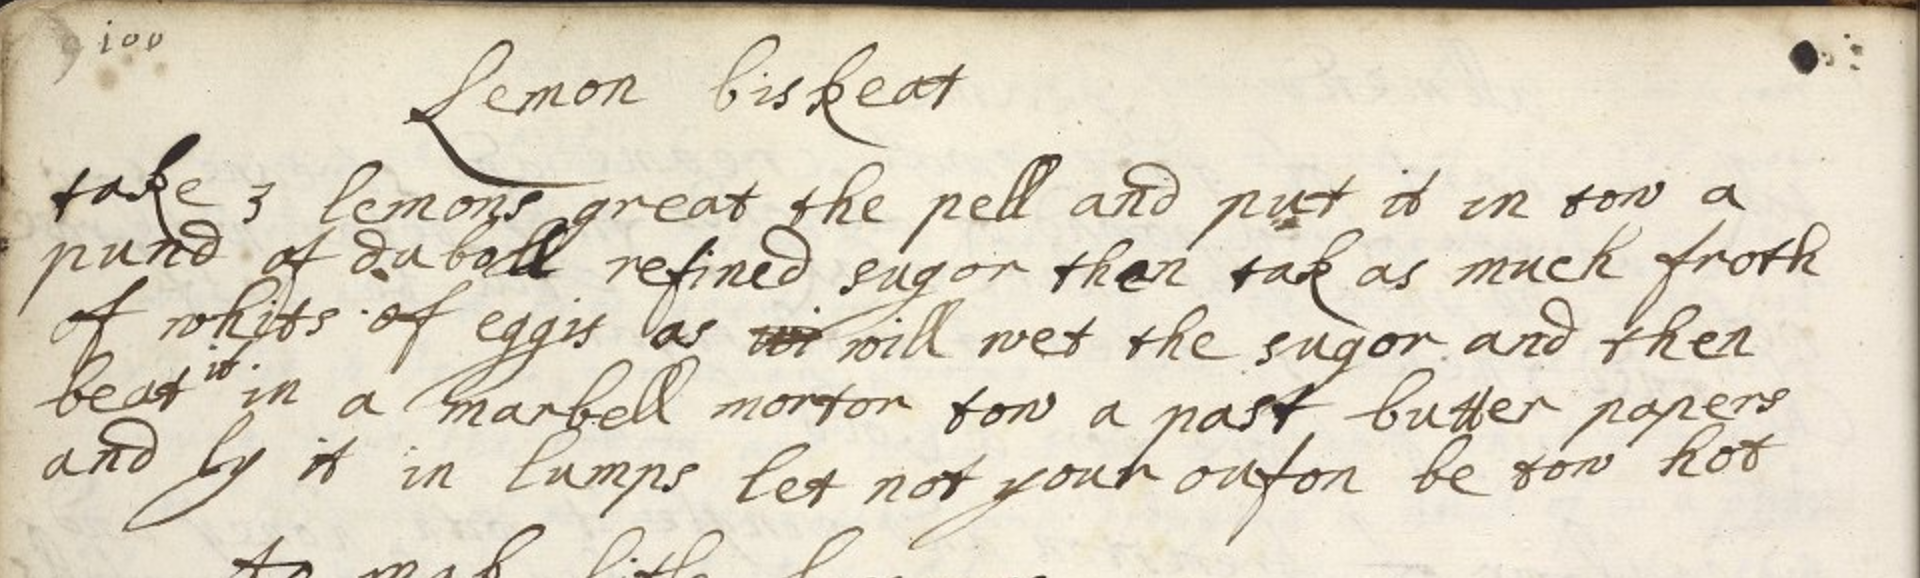 100
Lemon biskeat
take 3 lemons great the pell and put it in tow a
pund of duboll refined sugor then tak as much froth
of whits of eggis as wi will wet the sugor and then
beat it in a marbell mortor tow a past butter papers
and ly it in lumps let not your oufon be tow hot
To mak litle